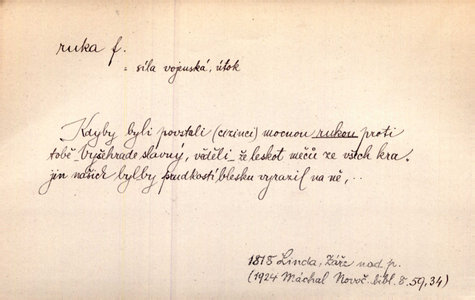 ruka f.
= síla vojenská, útok
Kdyby byli povstali (cizinci) mocnou rukou proti
tobě Vyšehrade slavný, viděli že leskot mečů ze všech kra-
jin našich bylby prudkostí blesku vyrazil na ně, ..
1818 Linda, Záře nad p.
(1924 Máchal Novoč. bibl. 8. 59, 34)